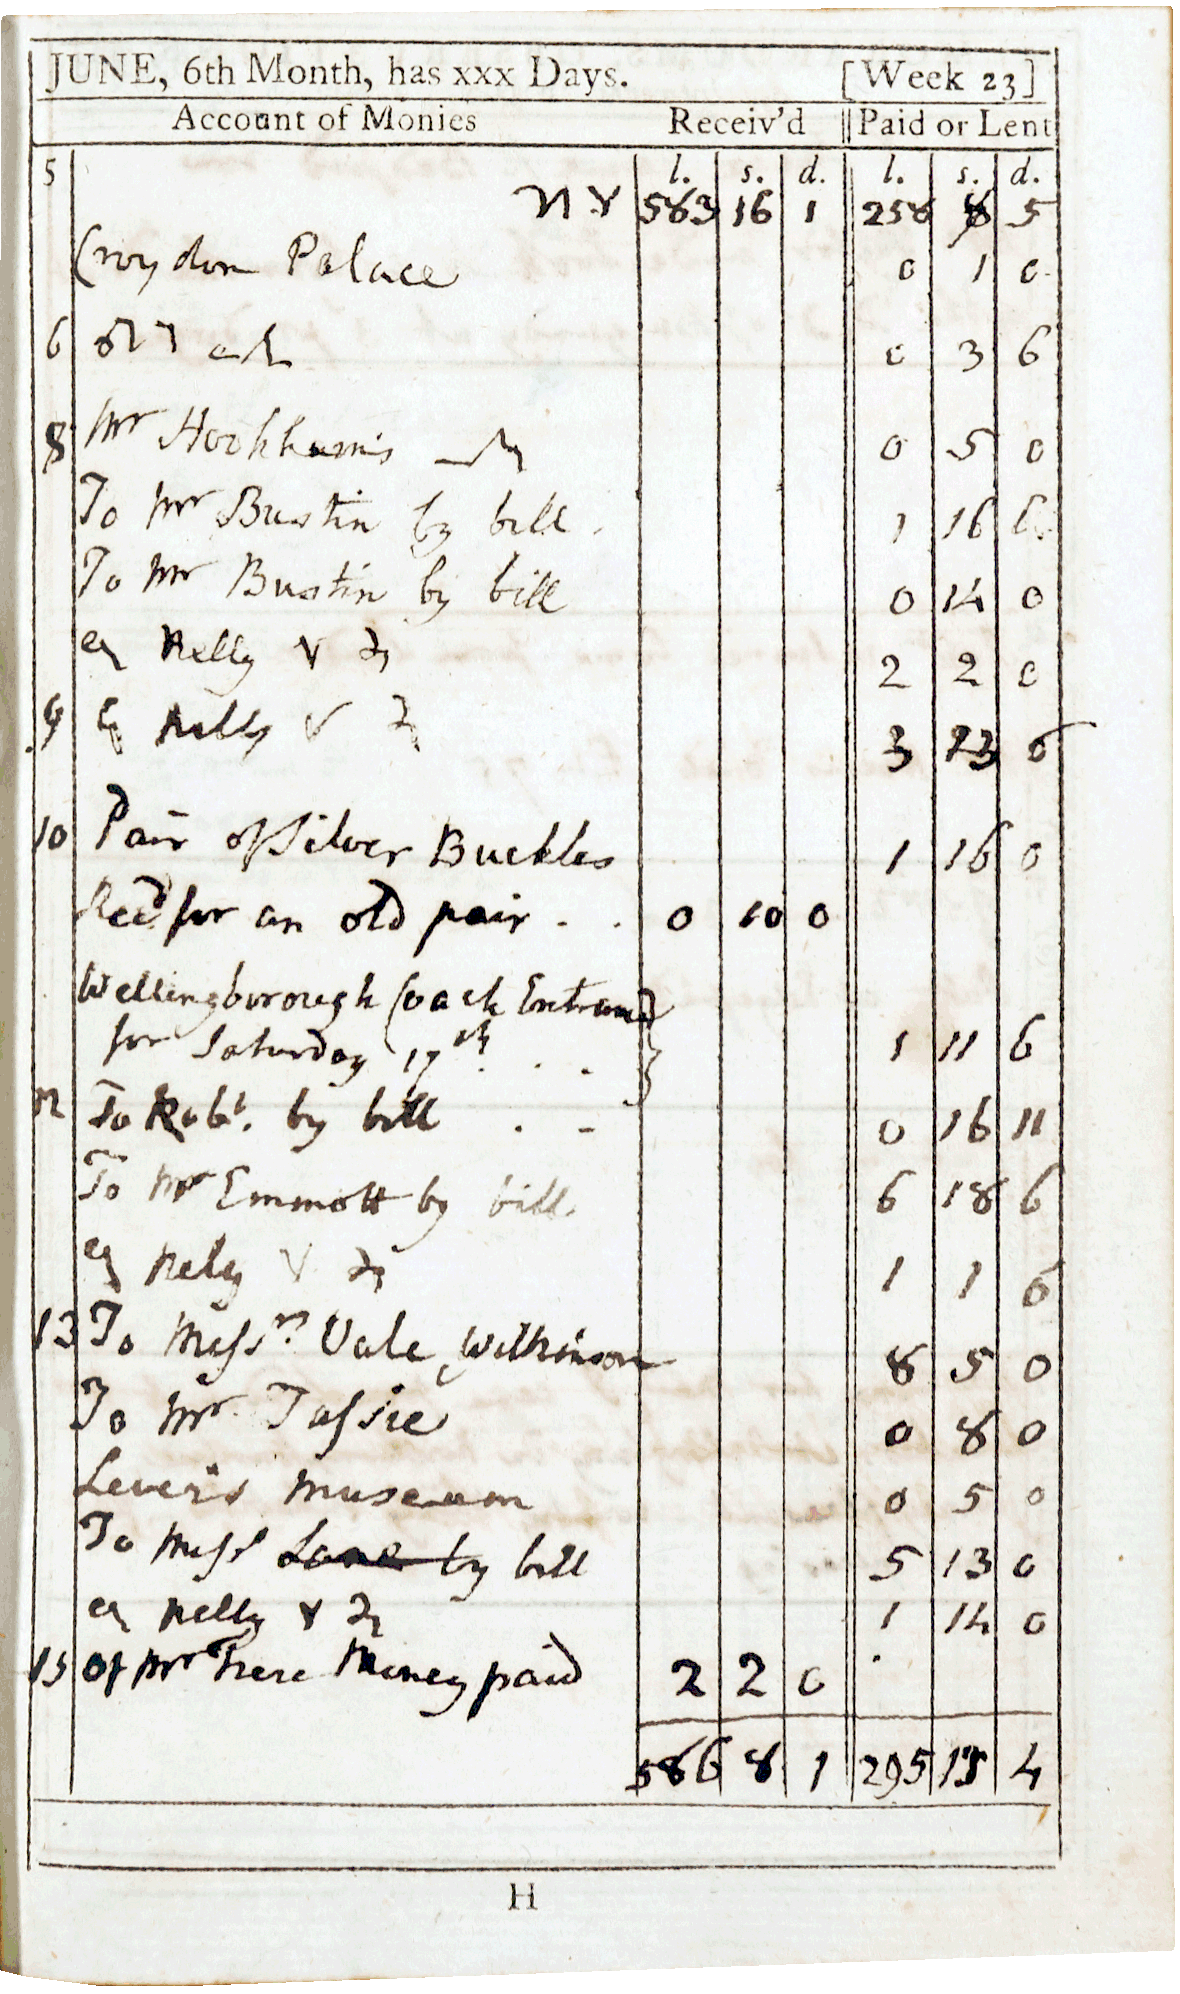 JUNE, 6th Month, has xxx Days. [Week 23]
Account of Monies Receiv'd Paid or Lent
5 l. s. d. l. s. d.
583 16 1 258 8 5
Croydon Palace 0 1 0
6 0 3 6
8 Mr Hookham's 0 5 0
To Mr Bustin by bill . 1 16 6
To Mr Bustin by bill 0 14 0
Nelly & 2 2 0
9 Nelly & 3 13 6
10 Pair of Silver Buckles 1 16 0
Recd for an old pair . . 0 10 0
Wellingborough Coach Entrance
for Saturday 17th . . . } 1 11 6
12 To Robt. by bill . - 0 16 11
To Mr Emmott by bill. 6 18 6
Nely & 1 1 6
13 To Messrs. Vale, Wilkinson 8 5 0
To Mr. Tassie 0 8 0
Lever's Museum 0 5 0
To Miss Lane by bill 5 13 0
Nelly & 1 14 0
15 Of Mr Frere Money paid 2 2 0
586 8 1 295 13 4
H